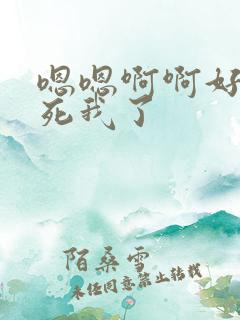 嗯嗯啊啊好
死我了
陌桑雪
未经同意禁止转载